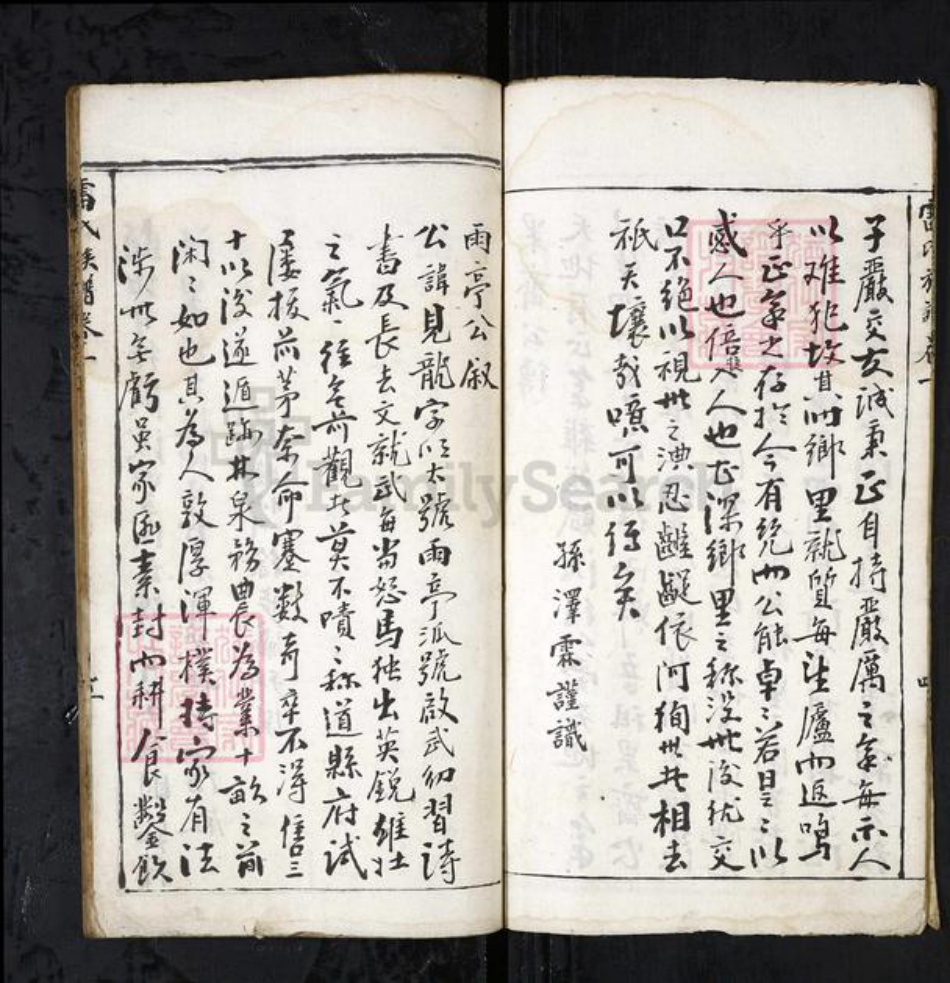 子嚴交友誠秉正自持嚴厲之氣每示人
以难犯故其時鄉里就質每望廬而返嗚
乎正氣之存於今有幾而公能卓々若是々以
感人也倍人人也甚深鄉里之称没世後犹交
口不绝以視世之淟忍齷齪依阿狥世者相去
祇天壤哉噫可以傳矣
孫澤霖謹識
雨亭公叙
公諱見龍字以大號雨亭派號啟武幼習詩
書及長去文就武每當怒馬独出英銳雄壮
之氣一往無前觀者莫不嘖々称道縣府試
屡拔前茅奈命蹇数奇卒不得售三
十以後遂遁跡林泉務農為業十畝之间
闲々如也其為人敦厚渾樸持家有法
涉世無虧虽家匪素封而耕食鑿飲
雷氏族譜卷一
FamilySearch